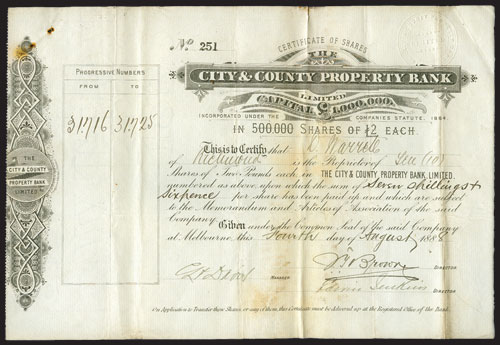 No. 251
CERTIFICATE OF SHARES
THE
CITY & COUNTY PROPERTY BANK
LIMITED
CAPITAL £1,000,000.
INCORPORATED UNDER THE COMPANIES STATUTE, 1864
IN 500,000 SHARES OF £2 EACH.
PROGRESSIVE NUMBERS
FROM TO
31716 31725
THE
CITY & COUNTY
PROPERTY BANK
LIMITED
This is to Certify that Warrell
of Richmond is the Proprietor of Ten (10)
Shares of Two Pounds each in THE CITY & COUNTY PROPERTY BANK, LIMITED.
numbered as above upon which the sum of Seven shillings &
Sixpence per share has been paid up and which are subject
to the Memorandum and Articles of Association of the said
Company Given under the Common Seal of the said Company
at Melbourne, this Fourth day of August 1888
MANAGER
Brown DIRECTOR
Jenkins DIRECTOR
On Application to Transfer these Shares or any of them, this Certificate must be delivered up at the Registered Office of the Bank.